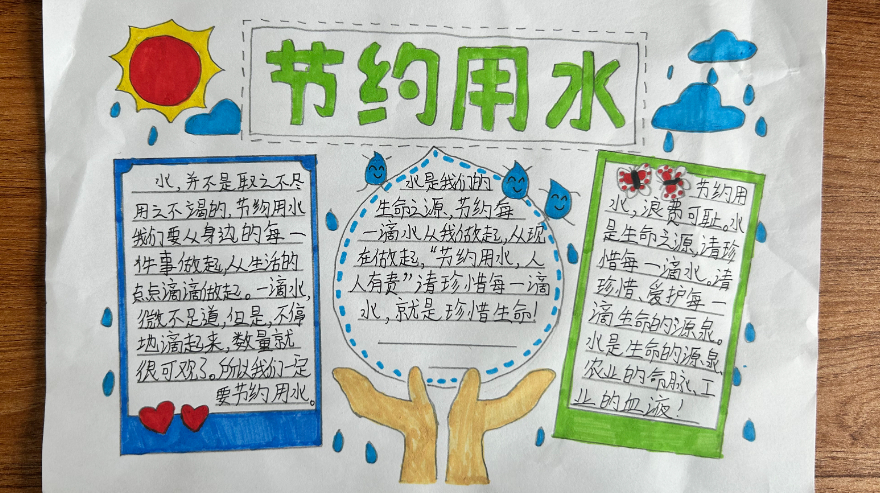 节约用水
水,并不是取之不尽
用之不竭的,节约用水
我们要从身边的每一
件事做起,从生活的
点点滴滴做起。一滴水,
微不足道,但是,不停
地滴起来,数量就
很可观了。所以我们一定
要节约用水。
水是我们的
生命之源、节约每
一滴水从我做起,从现
在做起,“节约用水,人
人有责”请珍惜每一滴
水,就是珍惜生命!
节约用
水,浪费可耻。水
是生命之源,请珍
惜每一滴水。请
珍惜、爱护每一
滴生命的源泉。
水是生命的源泉、
农业的命脉、工
业的血液!